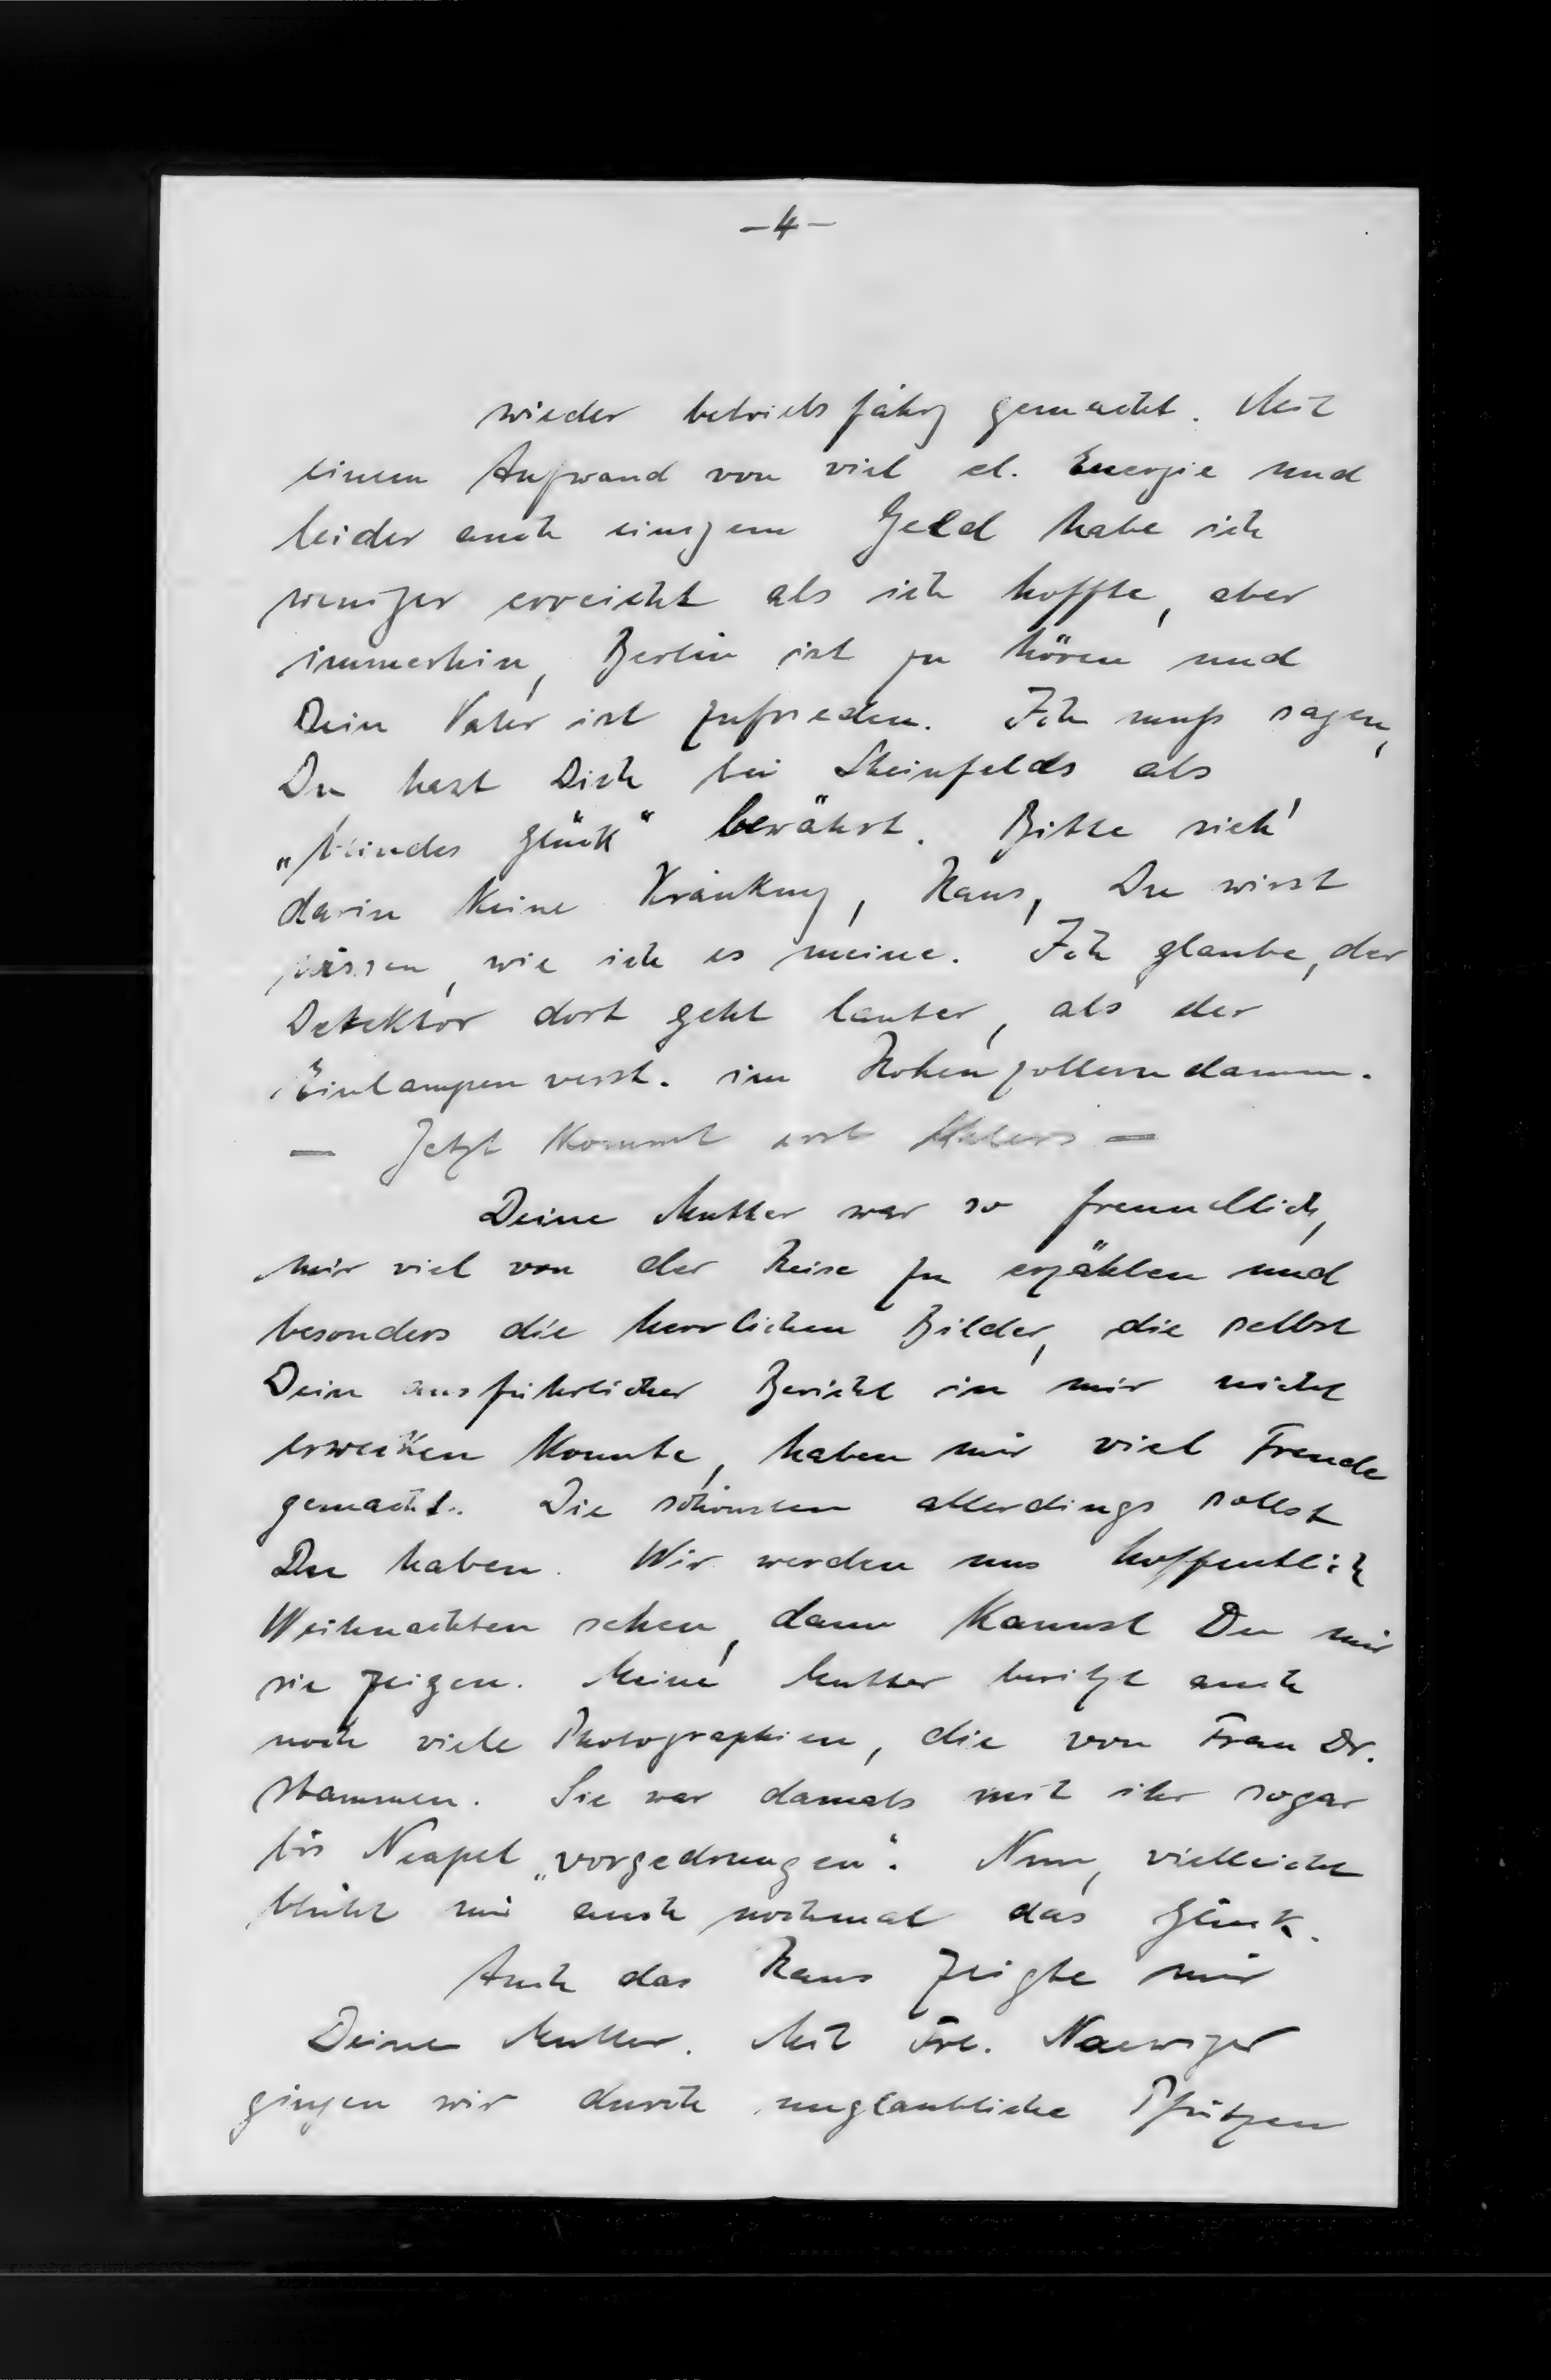 -4-
wieder betriebsfähig gemacht. Mit
einem Aufwand von viel el. Energie und
leider auch einigem Geld habe ich
weniger erreicht als ich hoffte, aber
immerhin, Berlin ist zu hören und
Dein Vater ist zufrieden. Ich muß sagen,
Du hast Dich bei Steinfelds als
„blindes Glück“ bewährt. Bitte sieh'
darin keine Kränkung, Hans, Du wirst
wissen, wie ich es meine. Ich glaube, der
Detektor dort geht lauter, als der
Einlampenverst. im Hohenzollerndamm.
— Jetzt kommt erst —
Deine Mutter war so freundlich,
mir viel von der Reise zu erzählen und
besonders die herrlichen Bilder, die selbst
Dein ausführlicher Bericht in mir nicht
erwecken konnte, haben mir viel Freude
gemacht. Die schönsten allerdings sollst
Du haben. Wir werden uns hoffentlich
Weihnachten sehen, dann kannst Du mir
sie zeigen. Meine Mutter besitzt auch
noch viele Photographien, die von Frau Dr.
stammen. Sie war damals mit ihr sogar
bis Neapel „vorgedrungen“. Nun, vielleicht
blüht mir auch nochmal das Glück.
Auch das Haus zeigte mir
Deine Mutter. Mit Frl. Naewiger
gingen wir durch unglaubliche Pfützen